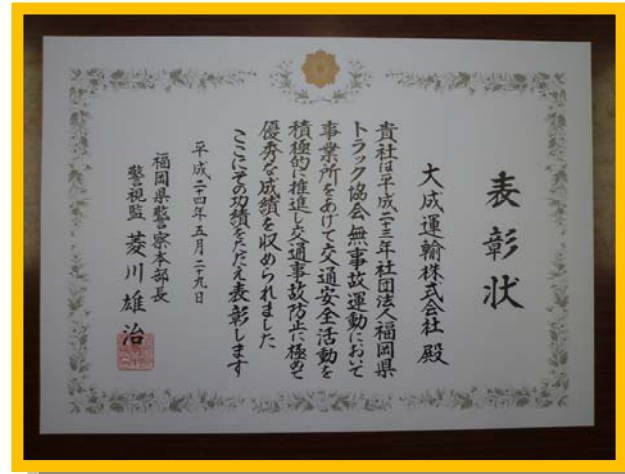 表彰状
大成運輸株式会社 殿
貴社は平成二十三年社団法人福岡県
トラック協会無事故運動において
事業所をあげて交通安全活動を
積極的に推進し交通事故防止に極めて
優秀な成績を収められました
ここにその功績をたたえ表彰します
平成二十四年五月二十九日
福岡県警察本部長
警視監 菱川雄治